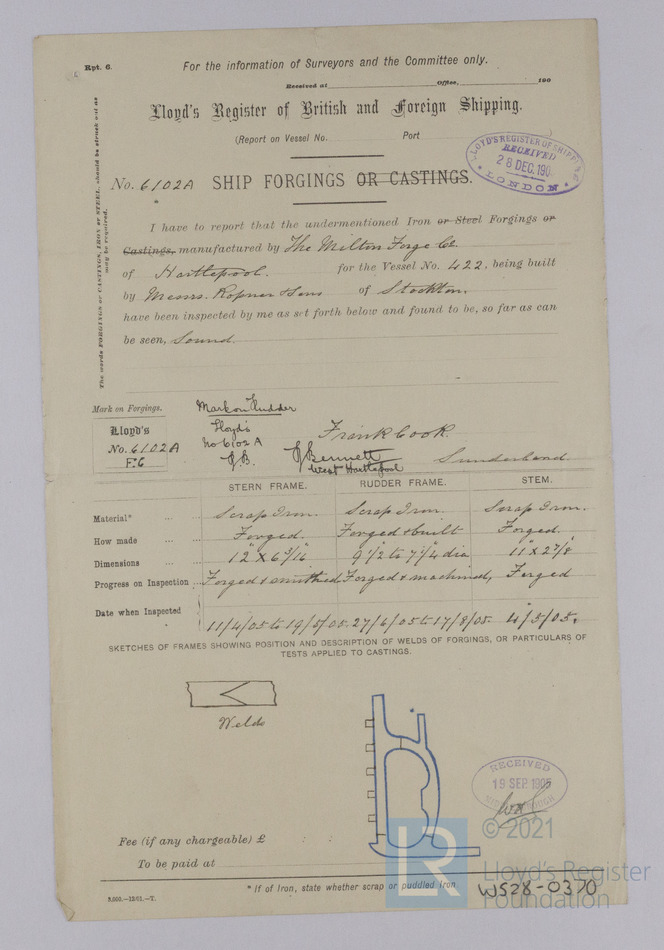 Rpt. 6.
For the information of Surveyors and the Committee only.
Received at Office, 190
Lloyd's Register of British and Foreign Shipping.
(Report on Vessel No. Port )
LLOYD'S REGISTER OF SHIPPING
RECEIVED
28 DEC. 190
LONDON
No. 6102A SHIP FORGINGS OR CASTINGS.
The words FORGINGS or CASTINGS, IRON or STEEL, should be struck out as may be required.
I have to report that the undermentioned Iron or Steel Forgings or
Castings, manufactured by The Milton Forge Co.
of Hartlepool. for the Vessel No. 422, being built
by Messrs. Ropner & Sons of Stockton.
have been inspected by me as set forth below and found to be, so far as can
be seen, Sound.
Mark on Forgings.
Lloyd's
No. 6102A
F.C
Mark on Rudder
Lloyd's
No 6102 A
J.B.
Frank Cook.
J Bennett Sunderland.
West Hartlepool
STERN FRAME. RUDDER FRAME. STEM.
Material* Scrap Iron. Scrap Iron. Scrap Iron.
How made Forged. Forged & built Forged.
Dimensions 12" x 6 3/16" 9 1/2 to 7 1/4 dia 11" x 2 7/8
Progress on Inspection Forged & smithied Forged & machined, Forged
Date when Inspected 11/4/05 to 19/5/05. 27/6/05 to 17/8/05. 4/5/05.
SKETCHES OF FRAMES SHOWING POSITION AND DESCRIPTION OF WELDS OF FORGINGS, OR PARTICULARS OF
TESTS APPLIED TO CASTINGS.
Welds
RECEIVED
19 SEP. 1905
Fee (if any chargeable) £ : :
To be paid at
* If of Iron, state whether scrap or puddled iron
5,000.—12/01.—T.
W528-0370
LR
© 2021
Lloyd's Register
Foundation